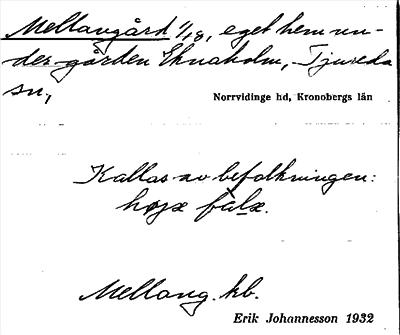 Mellangård 1/18, eget hem un-
der gården Eknaholm, Tjureda
sn,
Norrvidinge hd, Kronobergs län
Kallas av befolkningen:
Mellang. kb.
Erik Johannesson 1932